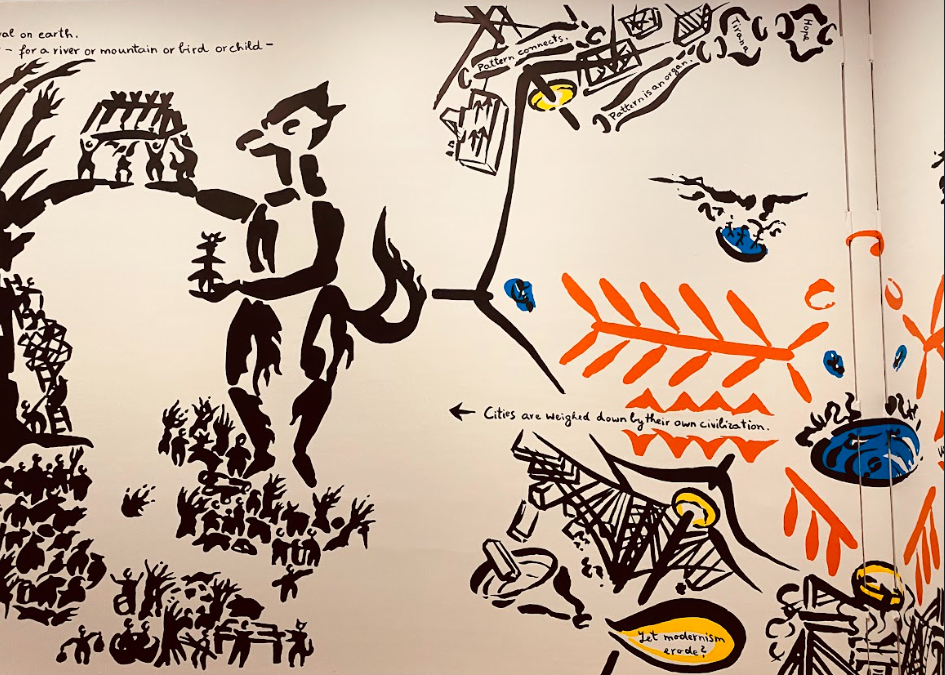 val on earth.
– for a river or mountain or bird or child –
Pattern connects.
Pattern is an organ.
Tirana
Hope
← Cities are weighed down by their own civilization.
Let modernism
erode?